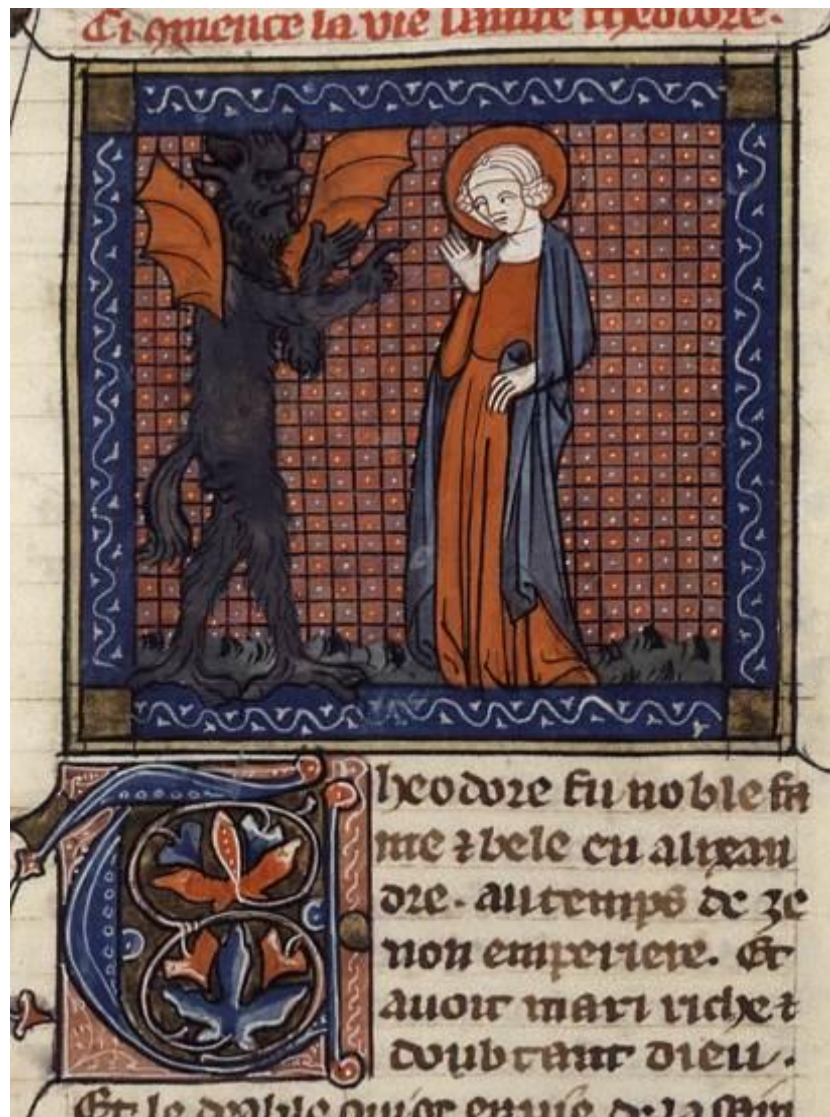 Ci com̃ence la vie sainte theodore.
Theodore fu noble fa
me ⁊ bele en alixan
dre. au temps de ze
non emperiere. Et
auoit mari riche ⁊
doubtant dieu.
Et le deable qui ot enuie de la